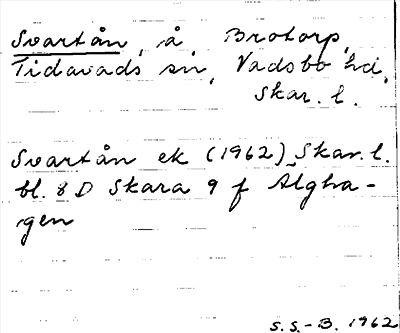 Svartån, å, Brotorp,
Tidavads sn, Vadsbo hd,
Skar. l.
Svartån ek (1962) Skar. l.
bl. 8 D Skara 9 f Algha-
gen
S.S.-B. 1962